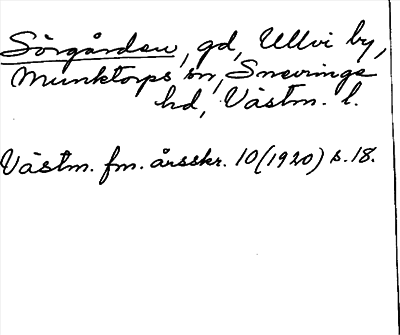 Sörgården, gd, Ullvi by,
Munktorps sn, Snevringe
hd, Västm. l.
Västm. fm. årsskr. 10 (1920) s. 18.